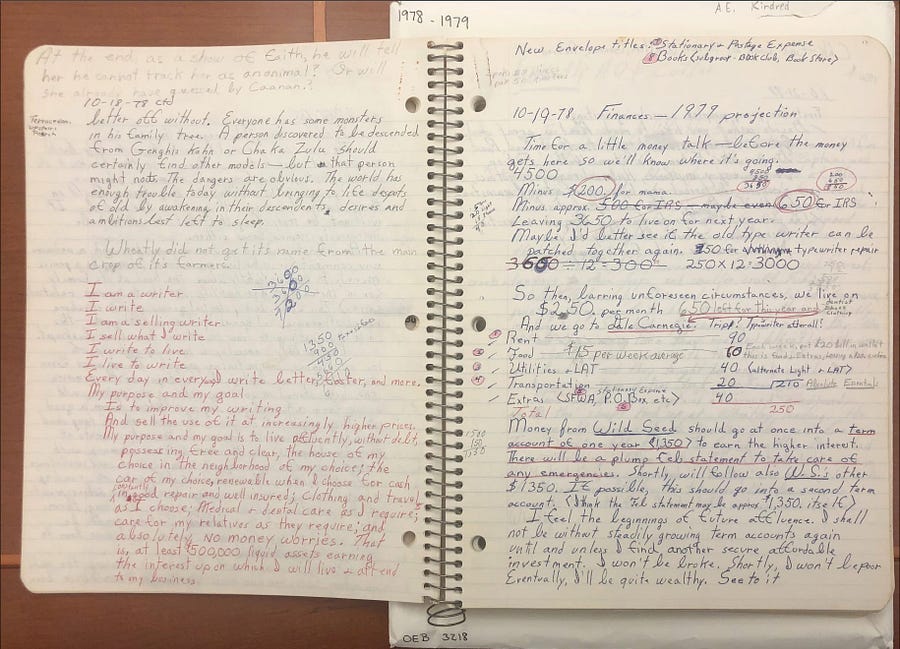 1978 - 1979
A.E. Kindred
At the end, as a show of faith, he will tell
her he cannot track her as an animal? Or will
she already have guessed by Caanan?
10-18-78 ctd
better off without. Everyone has some monsters
in his family tree. A person discovered to be descended
from Genghis Kahn or Chaka Zulu should
certainly find other models — but that person
might not. The dangers are obvious. The world has
enough trouble today without bringing to life despots
of old by awakening in their descendents, desires and
ambitions best left to sleep.
Wheatly did not get its name from the main
crop of its farmers.
I am a writer
I write
I am a selling writer
I sell what I write
I write to love
I live to write
Every day in every way I write better, faster, and more.
My purpose and my goal
Is to improve my writing
And sell the use of it at increasingly higher prices.
My purpose and my goal is to live affluently, without debt,
possessing free and clear, the house of my
choice in the neighborhood of my choice; the
car of my choice, renewable when I choose for cash
constantly
in good repair and well insured; clothing and travel
as I choose; Medical & dental care as I require;
care for my relatives as they require; and
absolutely no money worries. That
is, at least $500,000 liquid assets earning
the interest upon which I will live & attend
to my business
1350
900
New Envelope titles: Stationary & Postage Expense
8 Books (subgroup - Book Club, Book Store)
10-19-78 Finances — 1979 projection
Time for a little money talk — before the money
gets here so we'll know where it's going.
4500
4500
850
3650
200
650
850
Minus $200 for mama
Minus approx. 500 for IRS — maybe even 650 for IRS
Leaving 3650 to live on for next year.
Maybe I'd better see if the old type writer can be
patched together again. 350 for typewriter repair
3650 ÷ 12 = 300 250 x 12 = 3000
So then, barring unforeseen circumstances, we live on
$250. per month 650 left for this year and
Dentist
Clothing
And we go to Dale Carnegie. Trip? Typwriter afterall!
Rent 90
Food — $15 per week average 60
Utilities & LAT 40 (alternate Light & LAT)
Transportation 20 210 Absolute Essentials
stationary Expense
Extras (SFWA, P.O. Box, etc) 40
Total 250
Money from Wild Seed should go at once into a term
account of one year (1350) to earn the higher interest.
There will be a plump Feb statement to take care of
any emergencies. Shortly will follow also W.S.'s other
$1350. If possible, this should go into a second term
account. (I think the Feb statement may be approx $1,350. itself)
I feel the beginnings of future affluence. I shall
not be without steadily growing term accounts again
until and unless I find another secure affordable
investment. I won't be broke. Shortly, I won't be poor
Eventually, I'll be quite wealthy. See to it
OEB 3218